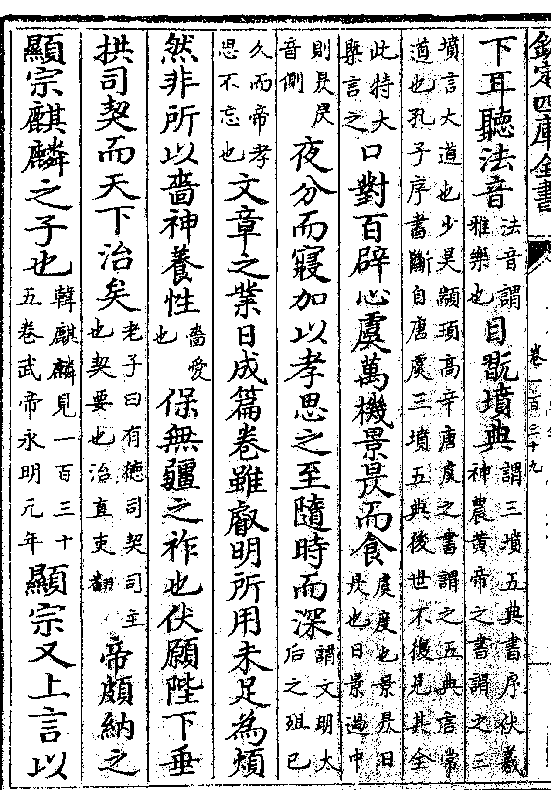 欽定四庫全書
卷一百三十九
下耳聽法音法音謂雅樂也目翫墳典謂三墳五典書序伏羲神農黄帝之書謂之三
墳言大道也少昊顓頊高辛唐虞之書謂之五典言常道也孔子序書斷自唐虞三墳五典後世不復見其全
此特大槩言之口對百辟心虞萬機景昃而食虞度也景昃日昃也日景過中
則昃昃音側夜分而寢加以孝思之至隨時而深謂文明太后之殂已
久而帝孝思不忘也文章之業日成篇卷雖叡明所用未足為煩
然非所以嗇神養性嗇愛也保無疆之祚也伏願陛下垂
拱司契而天下治矣老子曰有德司契司主也契要也治直吏翻帝頗納之
顯宗麒麟之子也韓麒麟見一百三十五卷武帝永明元年顯宗又上言以